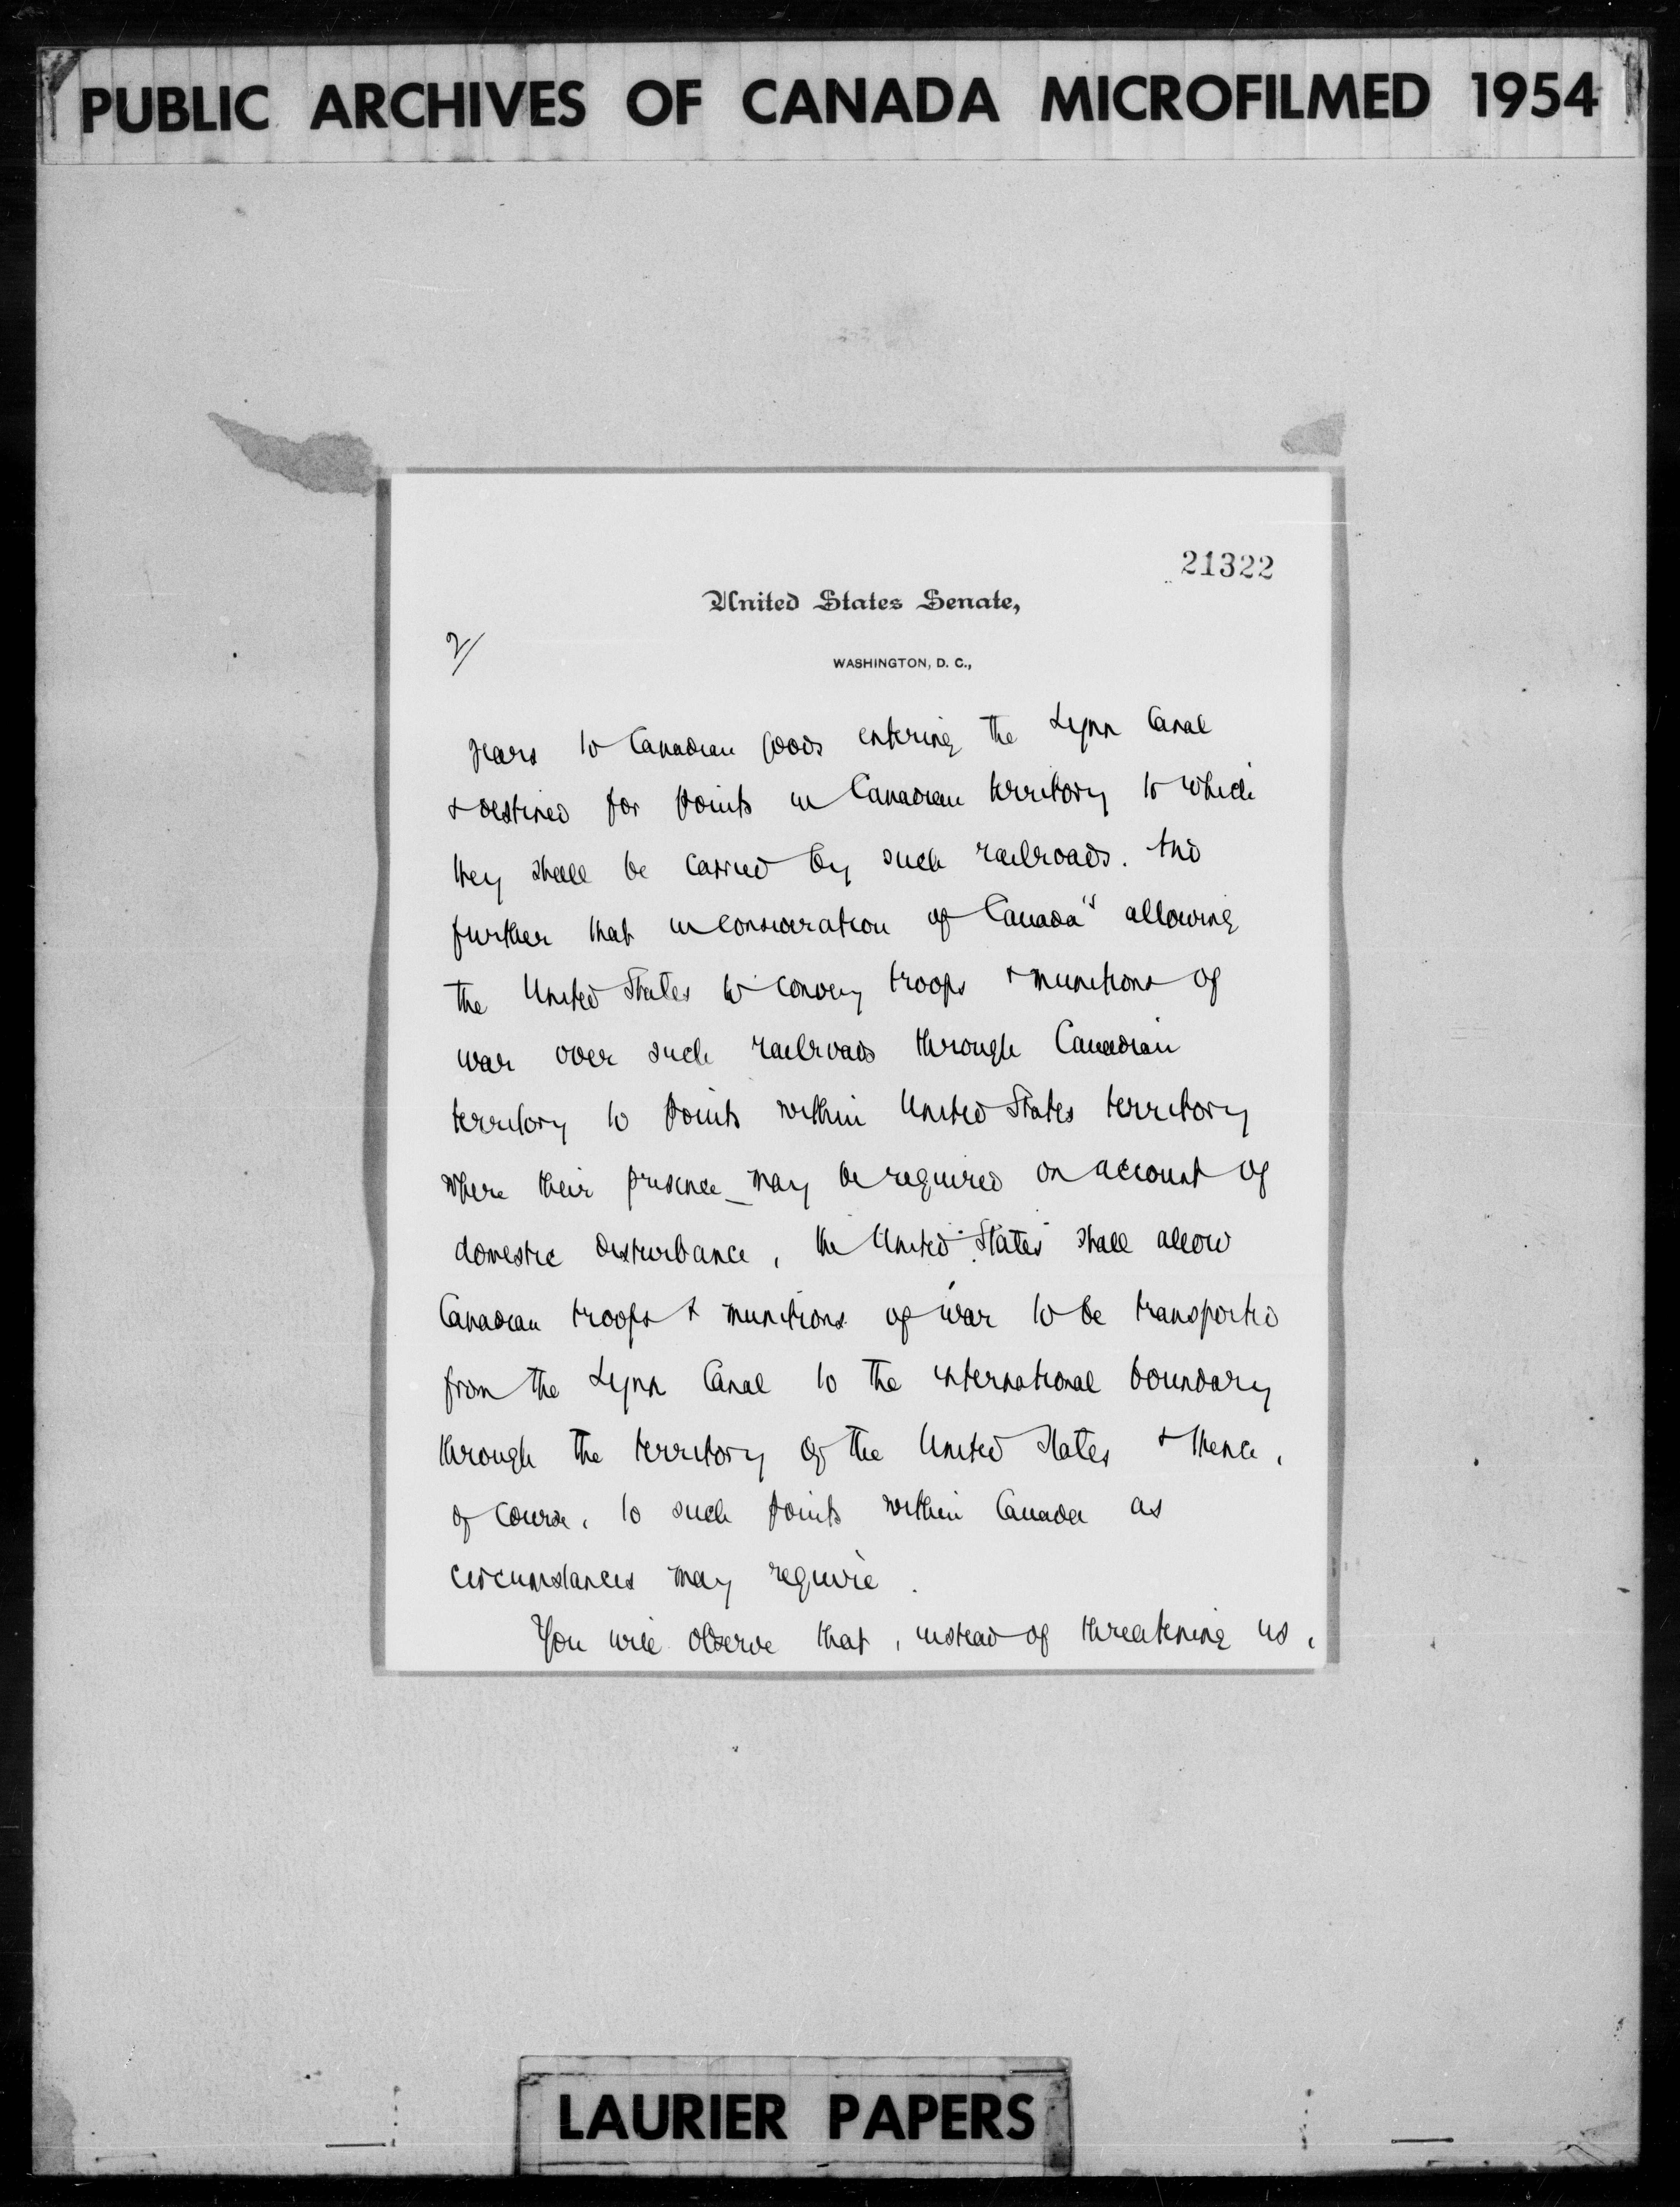 PUBLIC ARCHIVES OF CANADA MICROFILMED 1954
21322
United States Senate,
2/
WASHINGTON, D. C.,
years to Canadian goods entering the Lynn Canal
& destined for points in Canadian territory to which
they shall be carried by such railroads. And
further that in consideration of Canada's allowing
the United States to convey troops & munitions of
war over such railroads through Canadian
territory to points within United States territory
where their presence may be required on account of
domestic disturbance, the United States shall allow
Canadian troops & munitions of war to be transported
from the Lynn Canal to the international boundary
through the territory of the United States & thence,
of course, to such points within Canada as
circumstances may require.
You will observe that, instead of threatening us,
LAURIER PAPERS